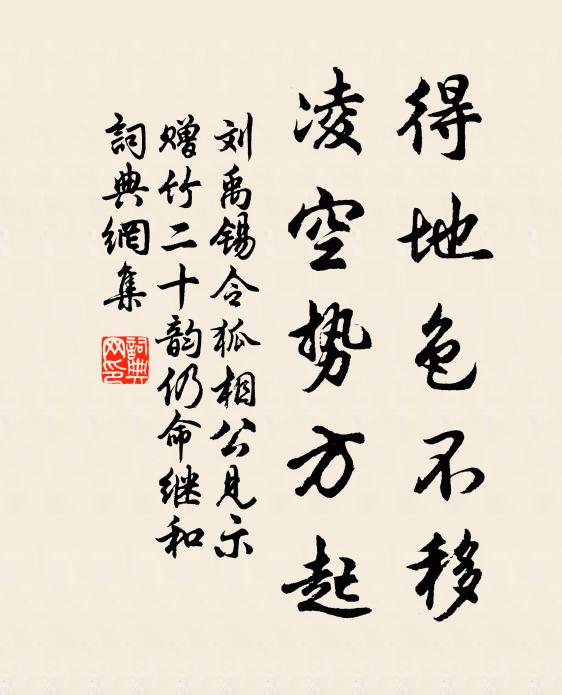 得地色不移
凌空势方起
刘禹锡令狐相公见示
赠竹二十韵仍命继和
詞典網集
詞典
网印